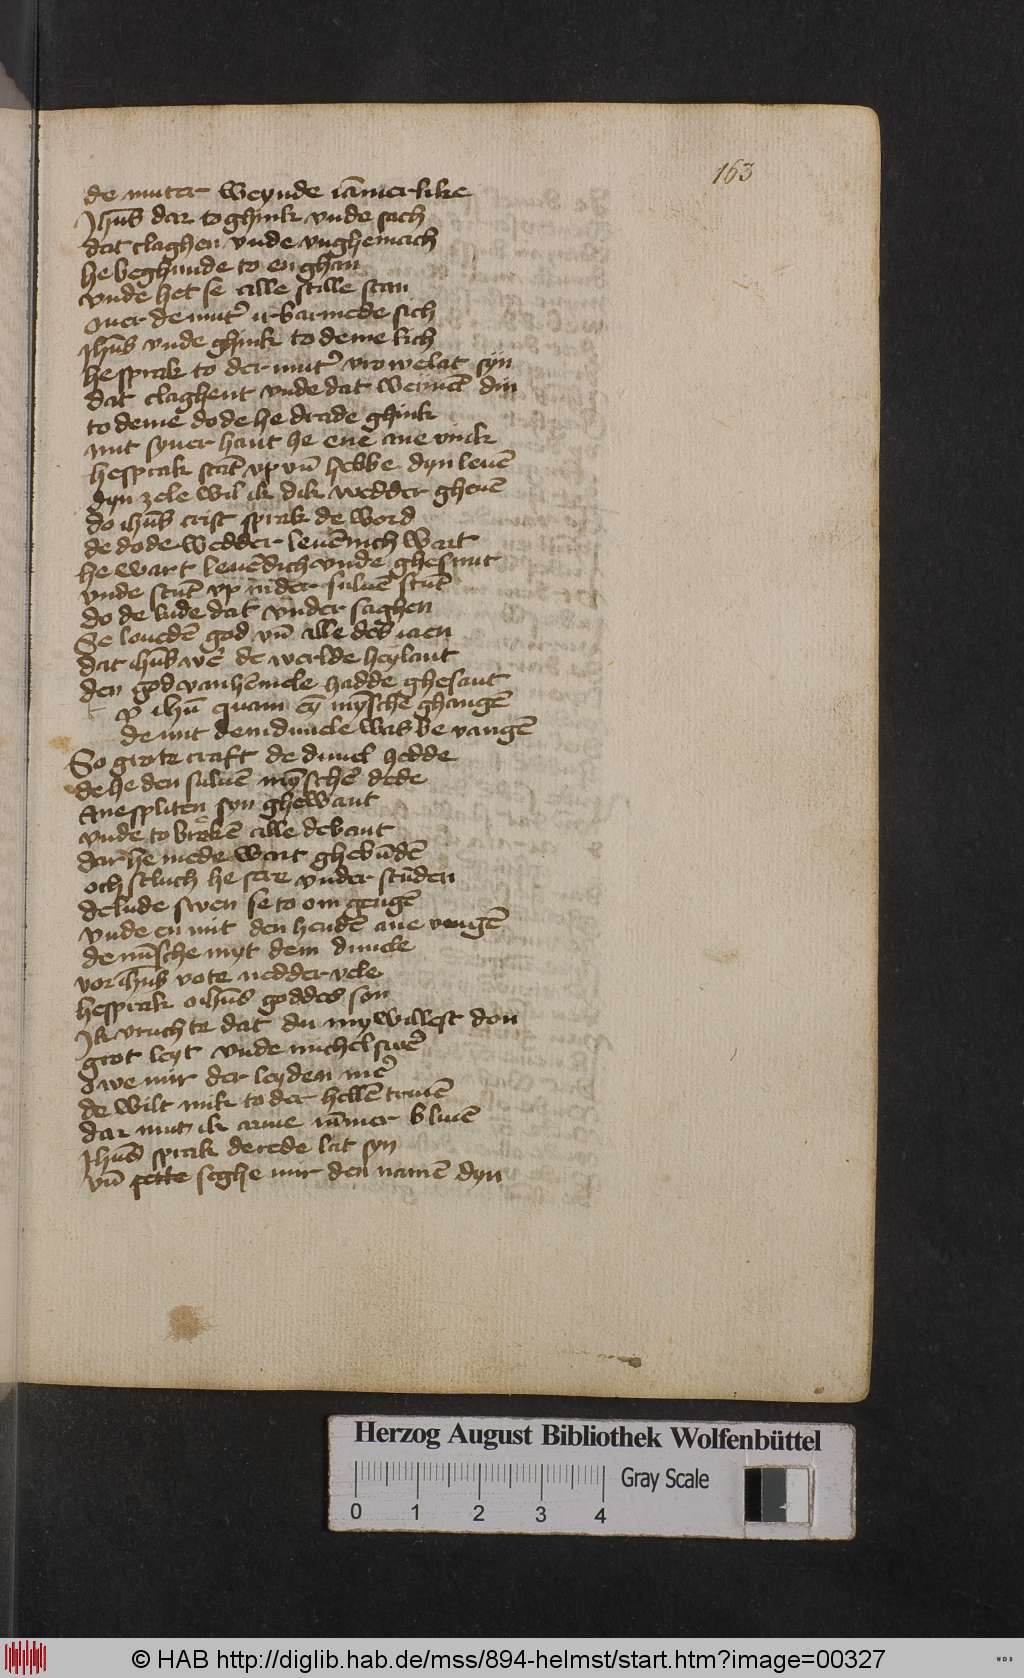 163
de muter weynde iāmerlike
Jhūs dar to ghink vnde sach
dat claghen vnde vnghemach
he beghunde to en ghan
vnde het se alle stille stan
ouer de mut᷑ irbarmede sich
Jhūs vnde ghink to deme lich
he sprak to der mut᷑ vrowe lat syn
dat claghent vnde dat weinēt din
to deme dode he drade ghink
mit syner hant he ene ane vink
he sprak stāt vp vn̄ hebbe dyn leuē
dyn zele wil ik dik wedder gheuē
do ihūs crist sprak de word
de dode wedder leuēnich wart
he wart leuēdich vnde ghesunt
vnde stūt vp in der suluē stūt
do de lude dat vnder saghen
Se louedē god vn̄ alle des iaen
dat ihūs wē de werlde heylant
den god van hēmele hadde ghesant
to ihū quam eȳ mȳsche ghangē
de mit dem duuele was be vangē
So grote craft de duuel hedde
de he den suluē mȳschē dede
Ane spliten syn ghewant
vnde to brokē alle de bant
dar he mede wart ghebūdē
och sluch he sere vnder stunden
de lude swen se to om gengē
vnde en mit den hendē ane vengē
de mīsche myt dem duuele
vor ihūs vote nedder vele
he sprak o ihūs goddes son
Ik vruchte dat du my willest don
grot leyt vnde michel swē
O we mir der leyden mē
de wilt mik to der hellē driuē
dar mut ik arme iūmer bliuē
Jhūs sprak de rede lat syn
vn̄ seghe mir den namē dyn
Herzog August Bibliothek Wolfenbüttel
0 1 2 3 4 Gray Scale
© HAB http://diglib.hab.de/mss/894-helmst/start.htm?image=00327